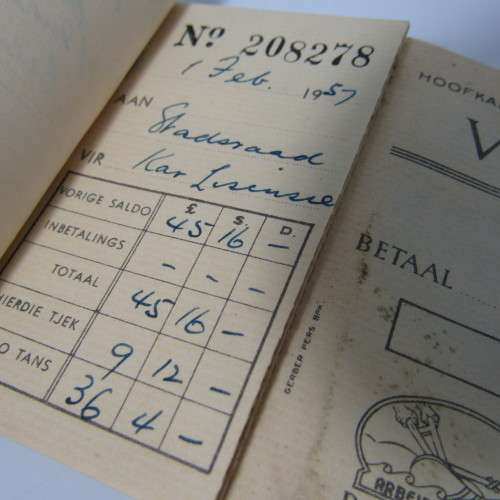 Nº 208278
1 Feb. 1957
AAN Stadsraad
VIR Kar Lisensie
£ S. D.
VORIGE SALDO 45 16 –
INBETALINGS - - –
TOTAAL 45 16 –
HIERDIE TJEK 9 12 –
O TANS 36 4 –
GERBER PERS BPK
HOOFKA
V
BETAAL
ARBE